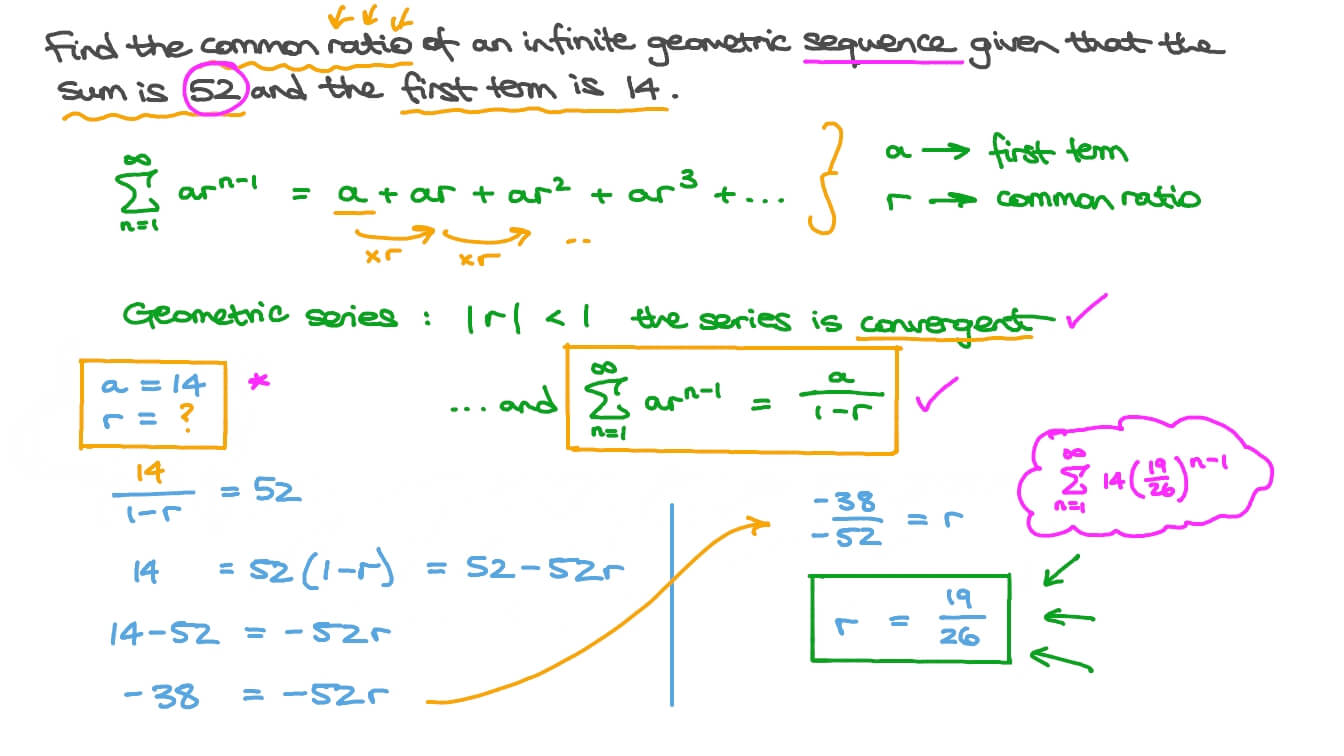 Find the common ratio of an infinite geometric sequence given that the
sum is 52 and the first term is 14.
∞
∑ arⁿ⁻¹ = a + ar + ar² + ar³ + ...
n=1
×r ×r ..
a → first term
r → common ratio
Geometric series : |r| < 1 the series is convergent ✓
a = 14 *
r = ?
... and ∞ ∑ n=1 arⁿ⁻¹ = a/(1-r) ✓
14/(1-r) = 52
14 = 52(1-r) = 52-52r
14-52 = -52r
-38 = -52r
-38/-52 = r
r = 19/26
∞ ∑ n=1 14(19/26)ⁿ⁻¹